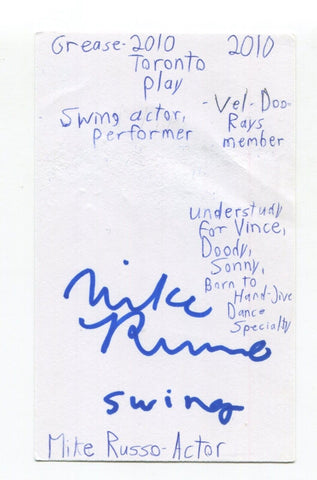 Grease-2010
2010
Toronto
play
Swing actor,
performer
-Vel-Doo-
Rays
member
understudy
for Vince,
Doody,
Sonny,
Born to
Hand-Jive
Dance
Specialty
Mike
Russo
swing
Mike Russo-Actor